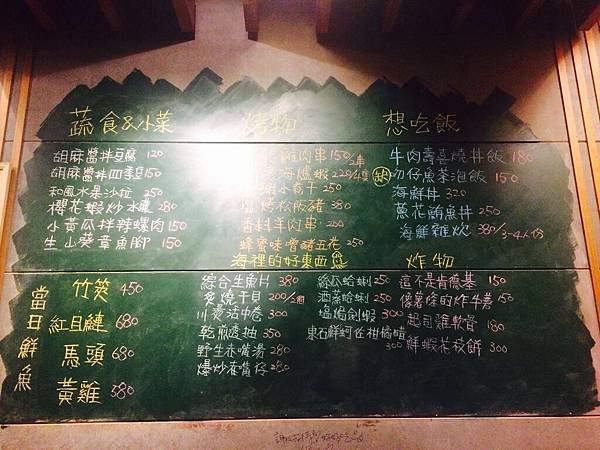 蔬食&小菜
胡麻醬拌豆腐 120
胡麻醬拌四季豆 150
和風水果沙拉 250
櫻花蝦炒水蓮 280
小黃瓜拌辣螺肉 150
生山葵章魚腳 150
烤物
雞肉串 150
220
一夜干 250
鹽烤松阪豬 380
香料羊肉串 200
蜂蜜味噌豬五花 250
想吃飯
牛肉壽喜燒丼飯 180
吻仔魚茶泡飯 150
海鮮丼 320
蔥花鮪魚丼 250
海鮮雜炊 380/3-4人份
當日鮮魚
竹筴 450
紅目鰱 680
馬頭 680
黃雞 380
海裡的好東西
綜合生魚片 380
炙燒干貝 200/2個
川燙沾中卷 300
乾煎透抽 350
野生赤嘴湯 280
爆炒赤嘴仔 280
絲瓜蛤蜊 250
酒蒸蛤蜊 250
塩焗劍蝦 300
東石鮮蚵佐柑橘醋 300
炸物
這不是肯德基 150
像薯條的炸牛蒡 150
起司雞軟骨 180
鮮蝦花枝餅 300